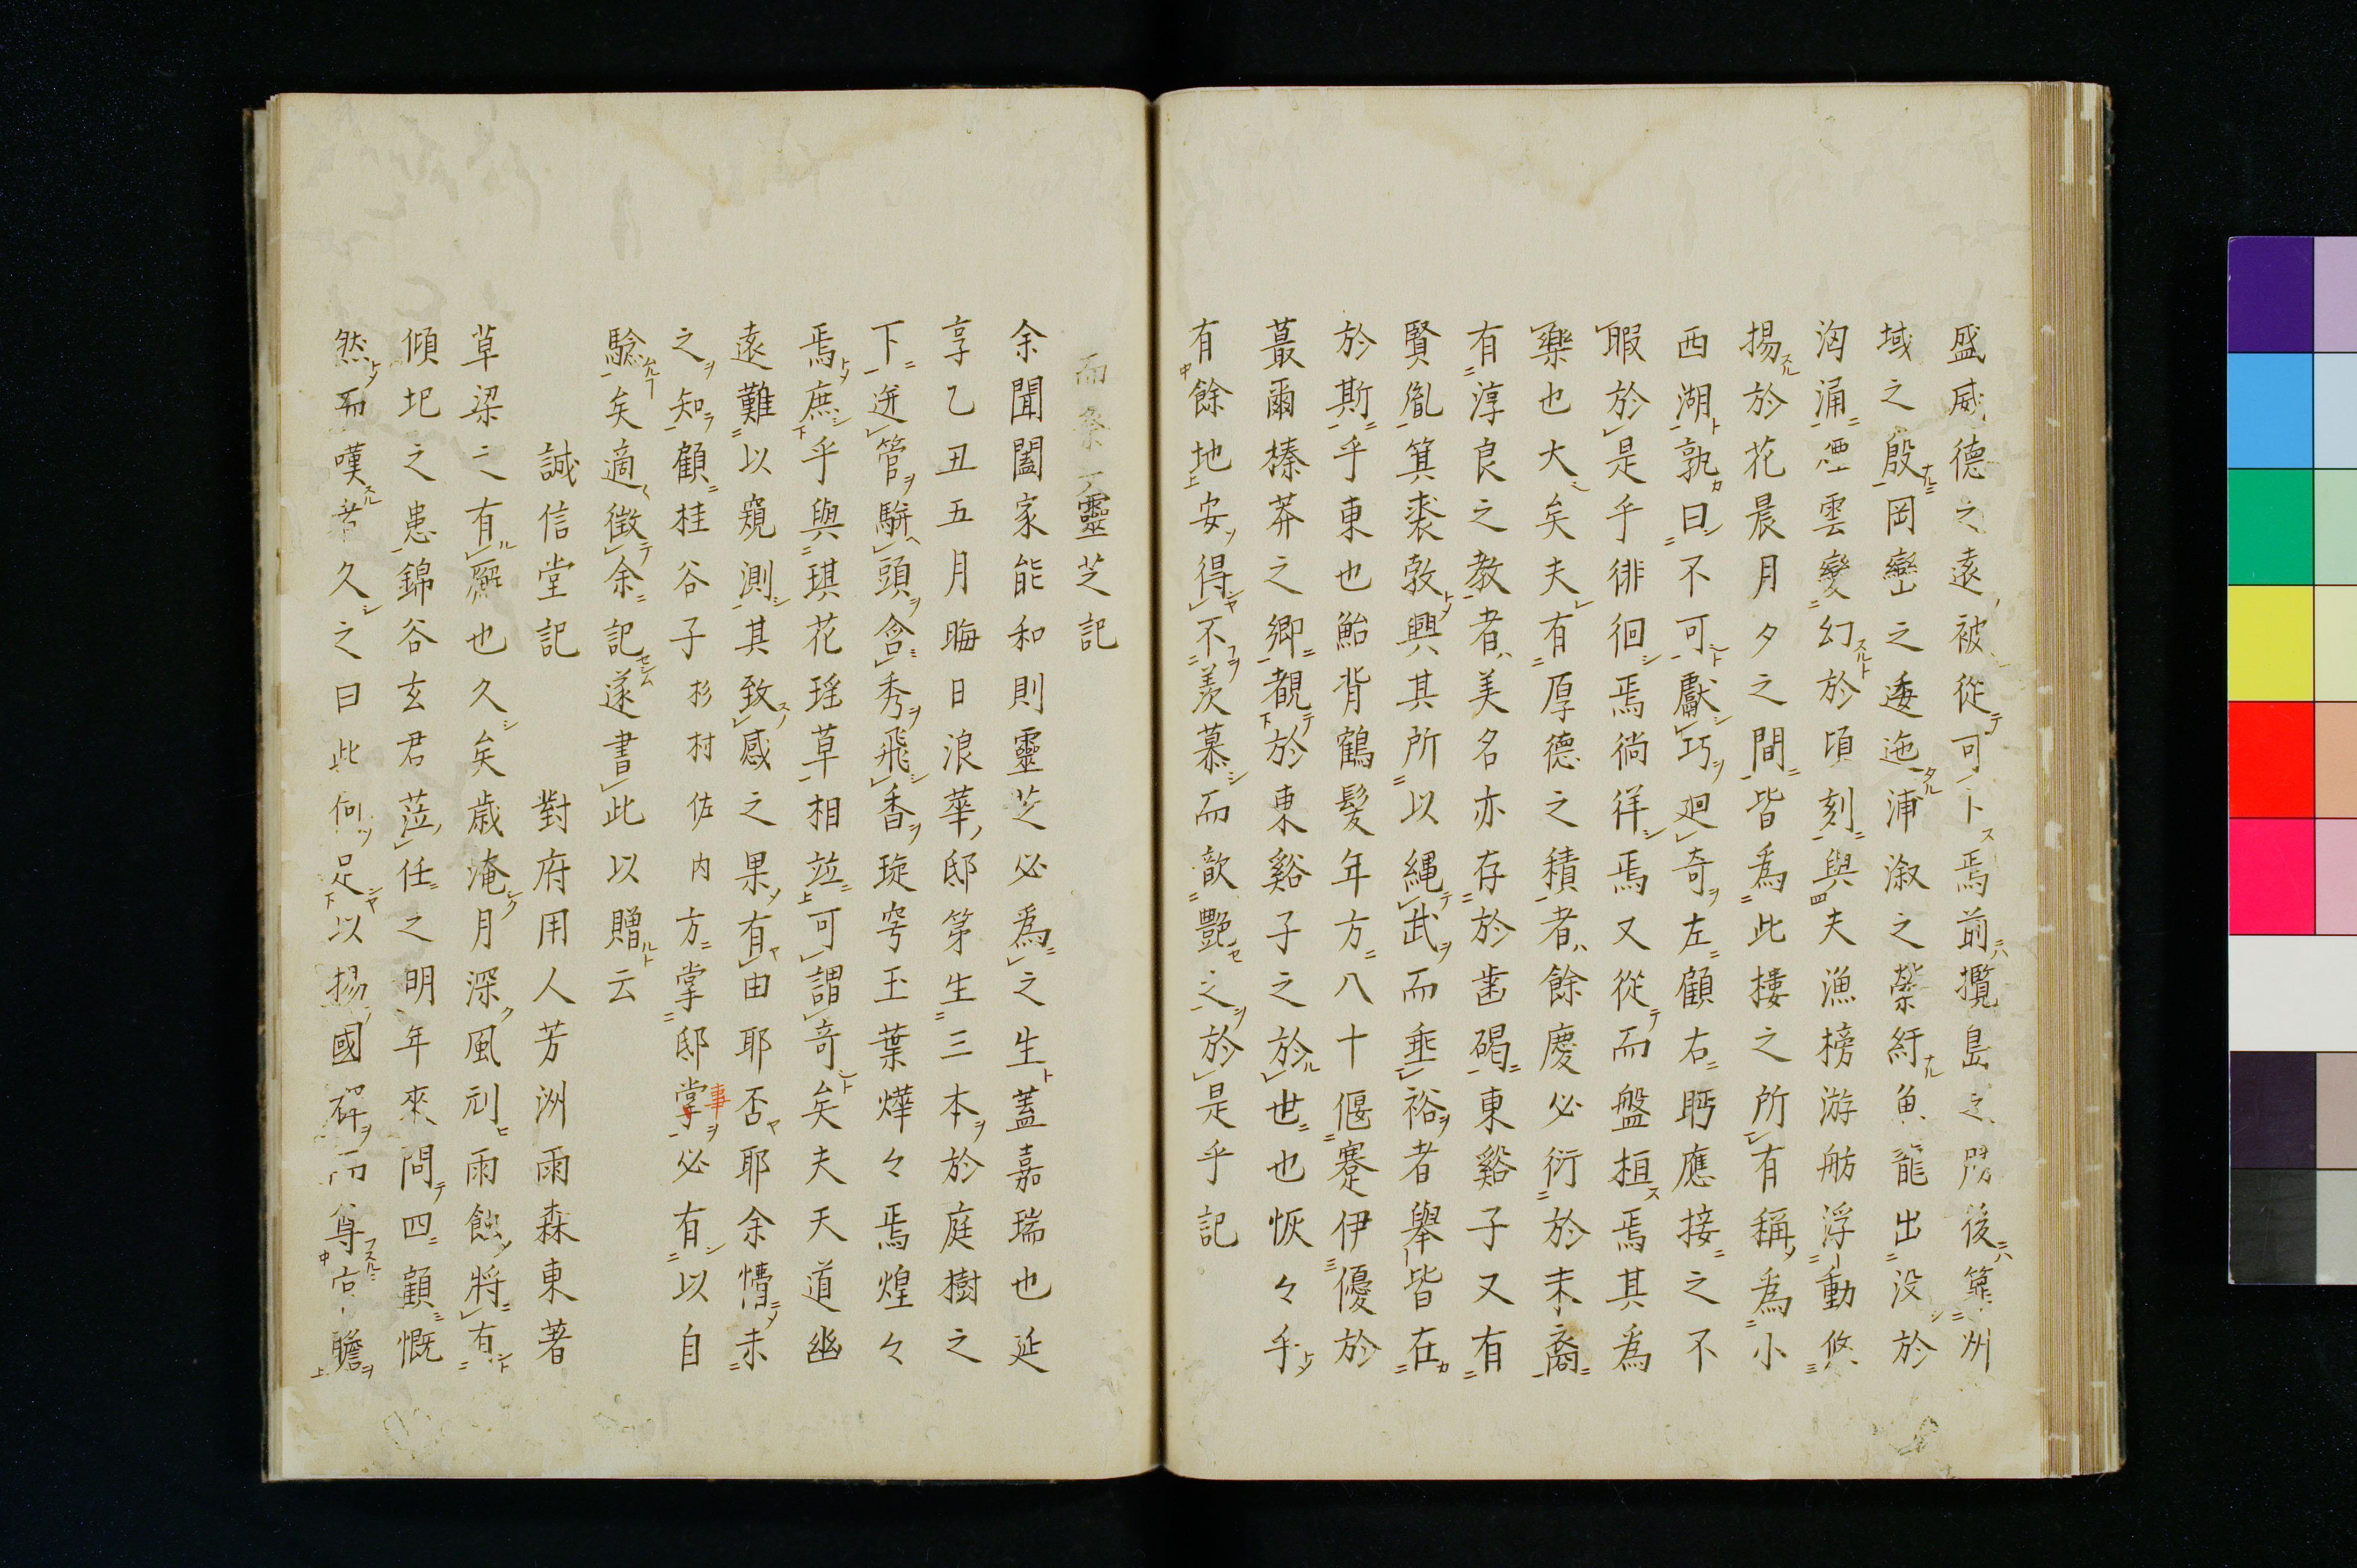 盛威德之遠被從可卜焉前攬島之勝後箟州
域之殷岡巒之逶迤浦溆之縈紆魚龍出没於
洶涌煙雲變幻於頃刻與夫漁榜游舫浮動悠
揚於花晨月夕之間皆為此摟之所有稱為小
西湖孰曰不可獻巧廻奇左顧右眄應接之不
暇於是乎徘徊焉徜徉焉又從而盤桓焉其為
樂也大矣夫有厚德之積者餘慶必衍於末裔
有淳良之教者美名亦存於齒碣東谿子又有
賢胤箕裘敦興其所以縄武而垂裕者舉皆在
於斯乎東也鮐背鶴髮年方八十偃蹇伊優於
蕞爾榛莽之鄉覩於東谿子之於世也恢々乎
有餘地安得不羨慕而歆艷之於是乎記
靈芝記
余聞闔家能和則靈芝必為之生蓋嘉瑞也延
享乙丑五月晦日浪華邸第生三本於庭樹之
下迸管駢頭含秀飛香琁穹玉葉燁々焉煌々
焉庶乎與琪花瑶草相竝可謂竒矣夫天道幽
遠難以窺測其致感之果有由耶否耶余懵未
之知顧桂谷子杉村佐内方掌邸掌必有以自
事
騐矣適徵余記遂書此以贈云
誠信堂記　對府用人芳洲雨森東著
草梁之有廨也久矣歳淹月深風刓雨蝕將有
傾圯之患錦谷玄君莅任之明年來問四顧慨
然而嘆者久之曰此何足以揚國○而尊○瞻